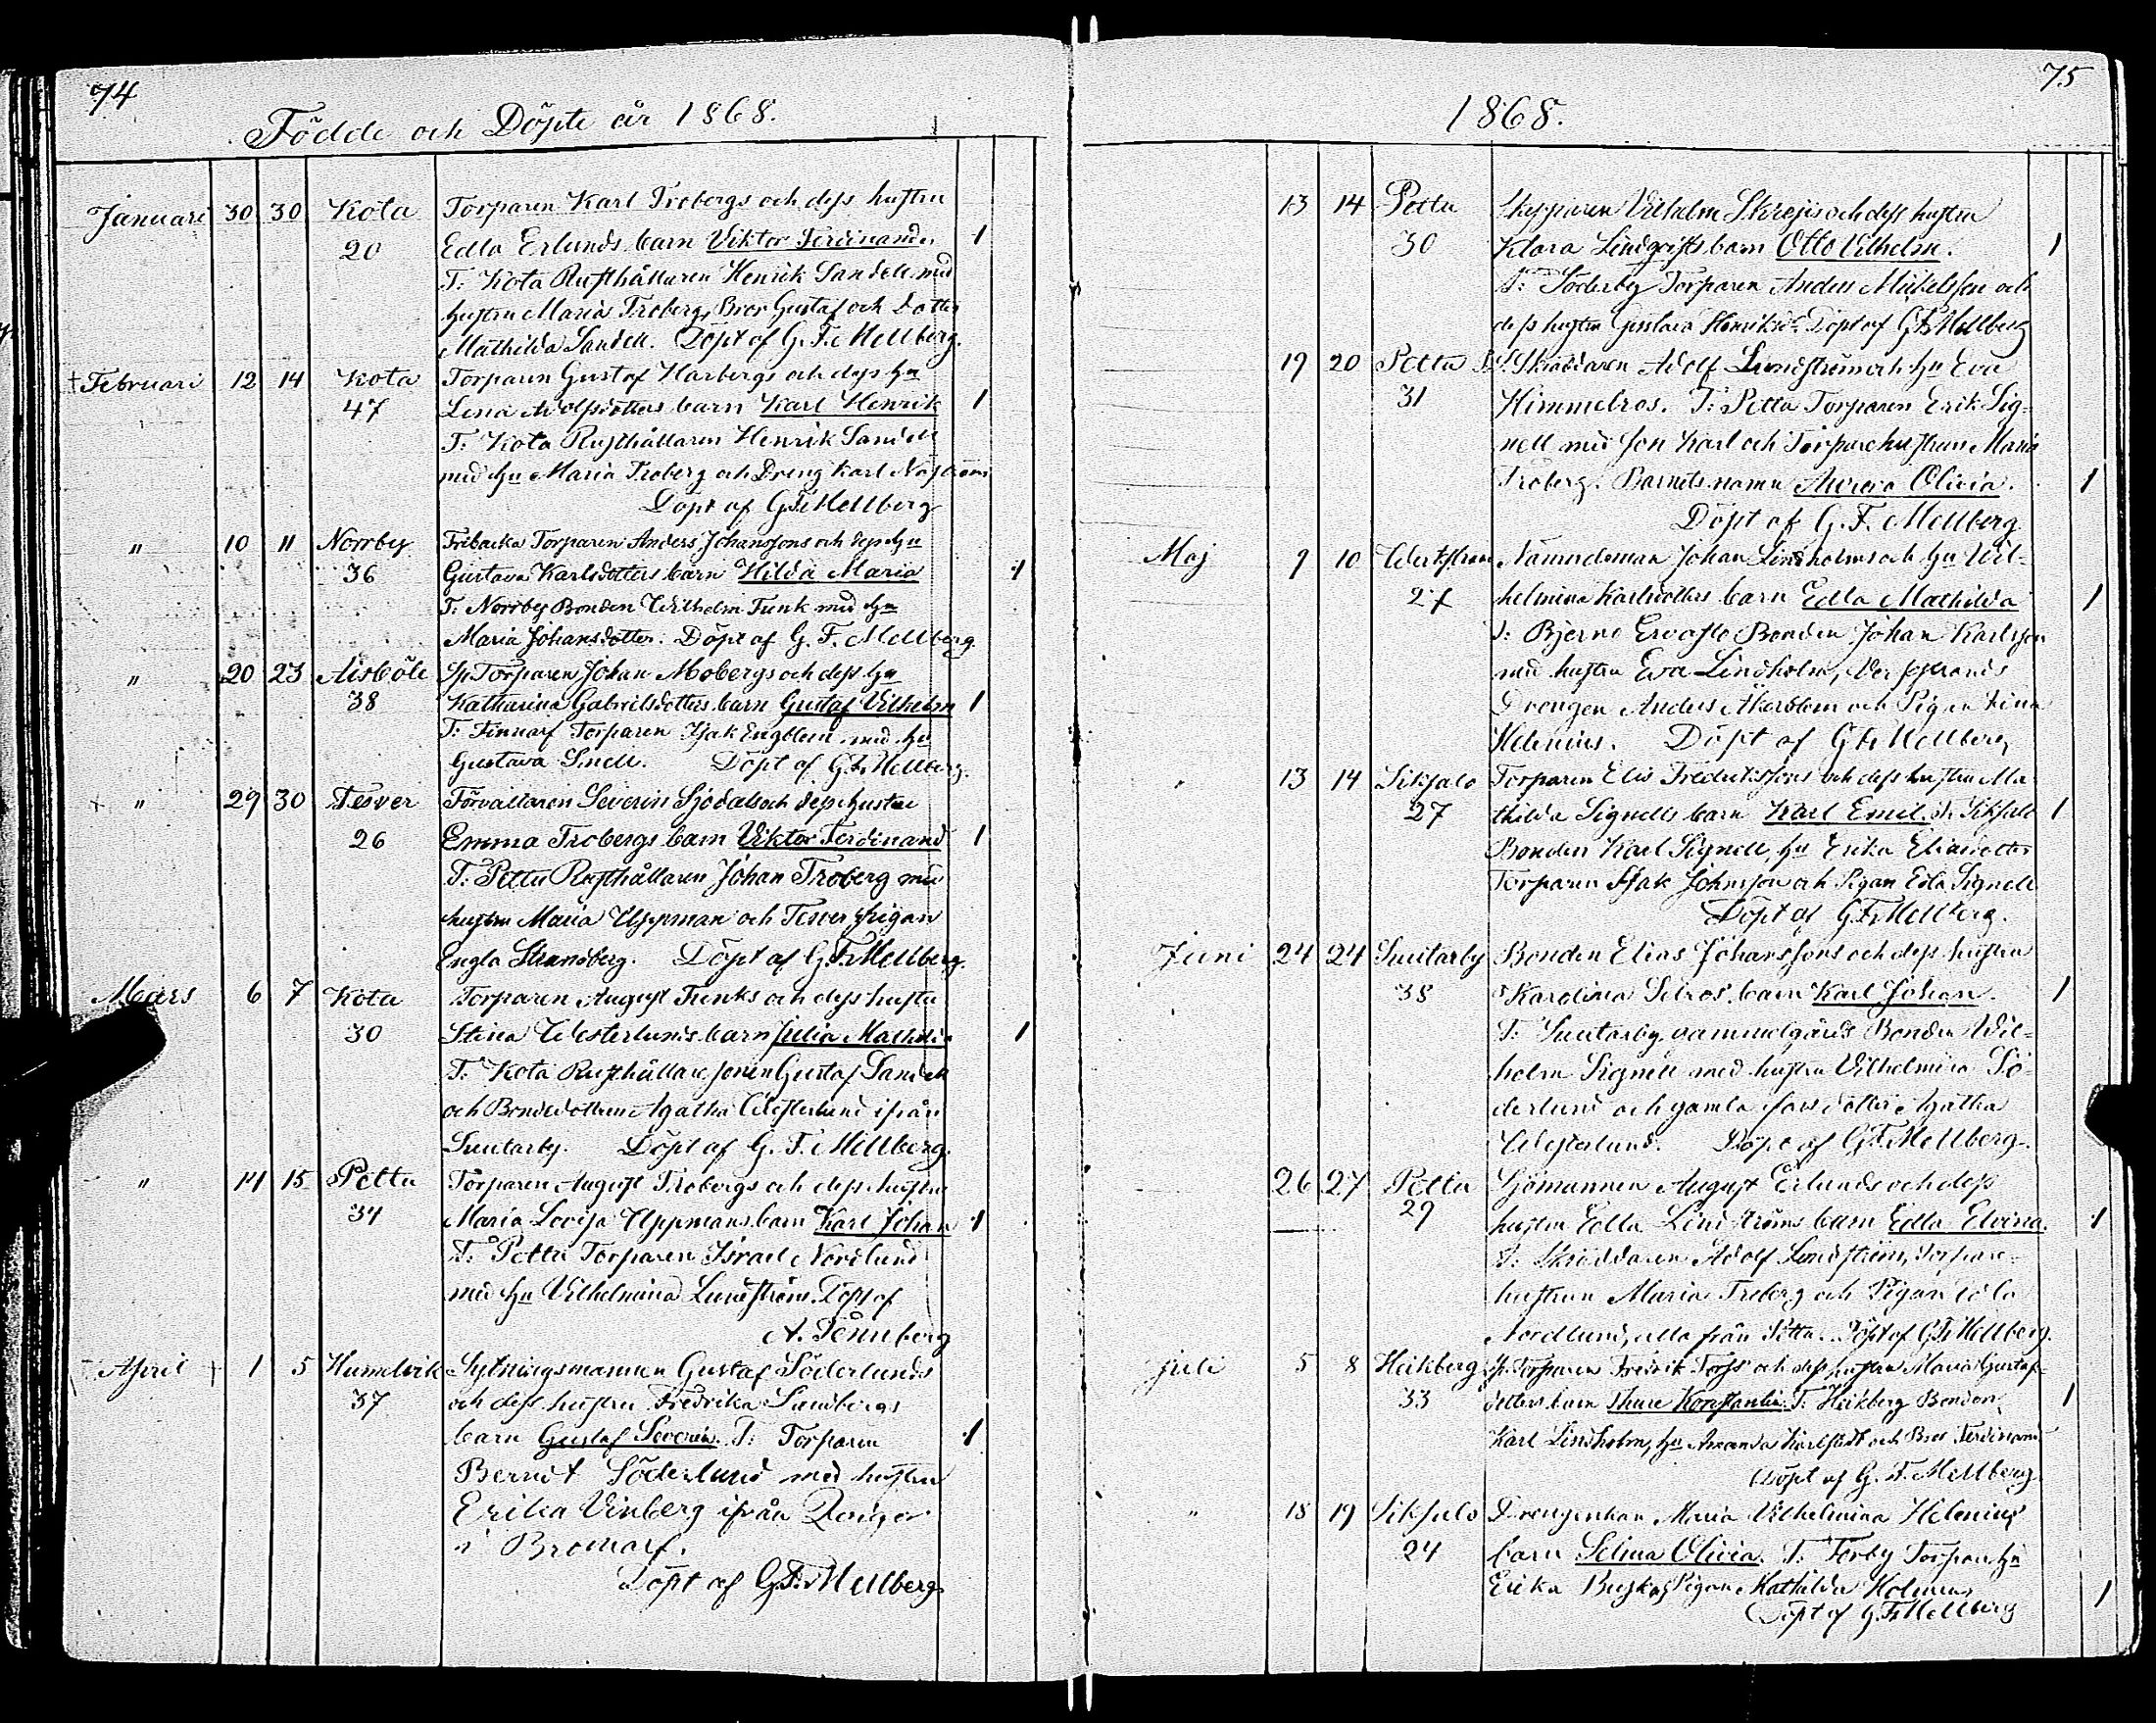 74
Födde och Döpte år 1868.
Januari 30 30 Kota Torparen Karl Frobergs och dess hustru
20 Edla Erlunds barn Viktor Ferdinand. 1
F: Kota Rusthållaren Henrik Sandell med
hustru Maria Froberg, Bror Gustaf och Dotter
Mathilda Sandell. Döpt af G. F. Mellberg.
† Februari 12 14 Kota Torparen Gustaf Harbergs och dess hu
47 Lena Adolfsdotters barn Karl Henrik 1
F: Kota Rusthållaren Henrik Sandell
med hu Maria Froberg och Dreng Karl
Döpt af G. F. Mellberg
" 10 11 Norrby Fribacka Torparen Anders Johanssons och dess hu
36 Gustava Karlsdotters barn Hilda Maria 1
F: Norrby Bonden Wilhelm Funk med hu
Maria Johansdotter. Döpt af G. F. Mellberg.
" 20 23 Aisböle Sp. Torparen Johan Mobergs och dess hu
38 Katharina Gabrielsdotters barn Gustaf Vilhelm 1
F: Finnarf Torparen Isak Engblom med hu
Gustava Snell. Döpt af G. F. Mellberg.
+ " 29 30 Tesver Förvaltaren Severin Sjödals och dess hustru
26 Emma Frobergs barn Viktor Ferdinand 1
F: Pettu Rusthållaren Johan Froberg med
hustru Maria Uppman och Tesver pigan
Engla Strandberg. Döpt af G. F. Mellberg.
Mars 6 7 Kota Torparen August Funks och dess hustru
30 Stina Westerlunds barn Julia Mathilda 1
F: Kota Rusthållare sonen Gustaf Sandell
och Bondedottren Agatha Westerlund ifrån
Suutarby. Döpt af G. F. Mellberg.
" 14 15 Pettu Torparen August Frobergs och dess hustru
34 Maria Lovisa Uppmans barn Karl Johan 1
F: Pettu Torparen Israel Nordlund
med hu Vilhelmina Lundström. Döpt af
A. Tennberg
† April † 1 5 Humelvik Sytningsmannen Gustaf Söderlunds
37 och dess hustru Fredrika Sundbergs
barn Gustaf Severin. F: Torparen 1
Berndt Söderlund med hustru
Erika Vinberg ifrån
i Bromarf.
Döpt af G. F. Mellberg
75
1868.
13 14 Pettu Skepparen Vilhelm och dess hustru
30 Klara Lindqvists barn Otto Vilhelm. 1
F: Söderby Torparen Anders Mickelsson och
dess hustru Gustava Henriksd. Döpt af G. F. Mellberg
19 20 Pettu Skräddaren Adolf Lundström och hu Eva
31 Himmelros. F: Pettu Torparen Erik Sig-
nell med son Karl och Torparehustrun Maria
Froberg. Barnets namn Aurora Olivia. 1
Döpt af G. F. Mellberg
Maj 9 10 Nämndeman Johan Lindholms och hu Wil-
27 helmina Karlsdotters barn Edla Mathilda 1
F: Bjerno Ervasto Bonden Johan Karlsson
med hustru Eva Lindholm,
Drengen Anders Åkerblom och Pigan Lina
Helenius. Döpt af G. F. Mellberg
" 13 14 Siksalo Torparen Elis Fredrikssons och dess hustru Ma
27 thilda Signells barn Karl Emil. F. Siksalo 1
Bonden Karl Signell, hu Erika Eliædotter
Torparen Isak Johnsson och Pigan Edla Signell
Döpt af G. F. Mellberg.
Juni 24 24 Suutarby Bonden Elias Johanssons och dess hustru
38 Karolina Selros' barn Karl Johan. 1
F: Suutarby gammelgårds Bonden Wil-
helm Signell med hustru Vilhelmina Sö-
derlund och gamla fars dotter Agatha
Westerlund. Döpt af G. F. Mellberg.
26 27 Pettu Sjömannen August Erlunds och dess
29 hustru Edla Lindströms barn Edla Elvina. 1
F: Skräddaren Adolf Lundström, Torpare-
hustrun Maria Froberg och Pigan Edla
Nordlund, alla från Pettu. Döpt af G. F. Mellberg.
Juli 5 8 Heikberg Sp. Torparen Fredrik Forss' och dess hustru Maria Gustafs-
33 dotters barn Thure Konstantin. F: Heikberg Bonden 1
Karl Lindholm, hu Amanda Karlstedt och Bror Ferdinand
Döpt af G. F. Mellberg
" 18 19 Siksalo Drengenkan Maria Vilhelmina Helenius
24 barn Selma Olivia. F: Förby Torpare hu
Erika Pigan Mathilda Holmen 1
Döpt af G. F. Mellberg